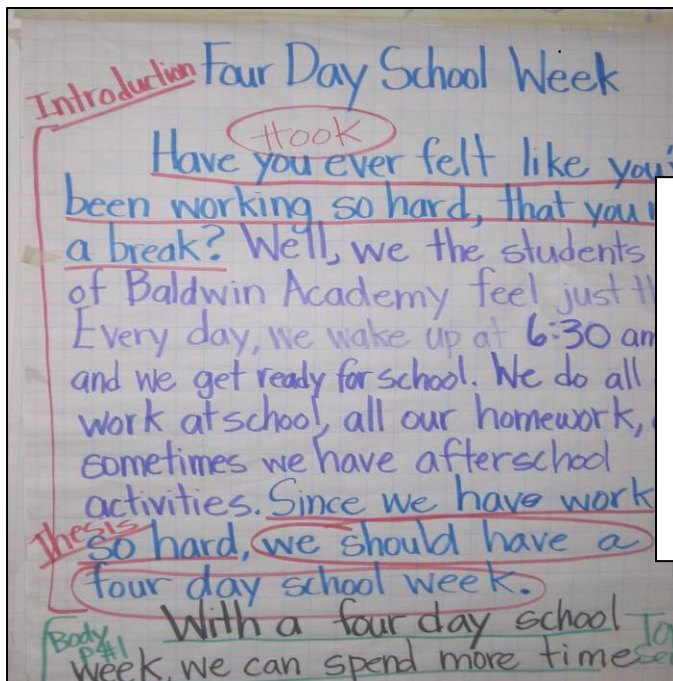 Introduction Four Day School Week
Hook
Have you ever felt like
been working so hard, that you
a break? Well, we the students
of Baldwin Academy feel just
Every day, we wake up at 6:30 am
and we get ready for school. We do all
work at school, all our homework,
sometimes we have afterschool
activities. Since we have work
Thesis so hard, we should have a
four day school week.
Body P#1 With a four day school
week, we can spend more time